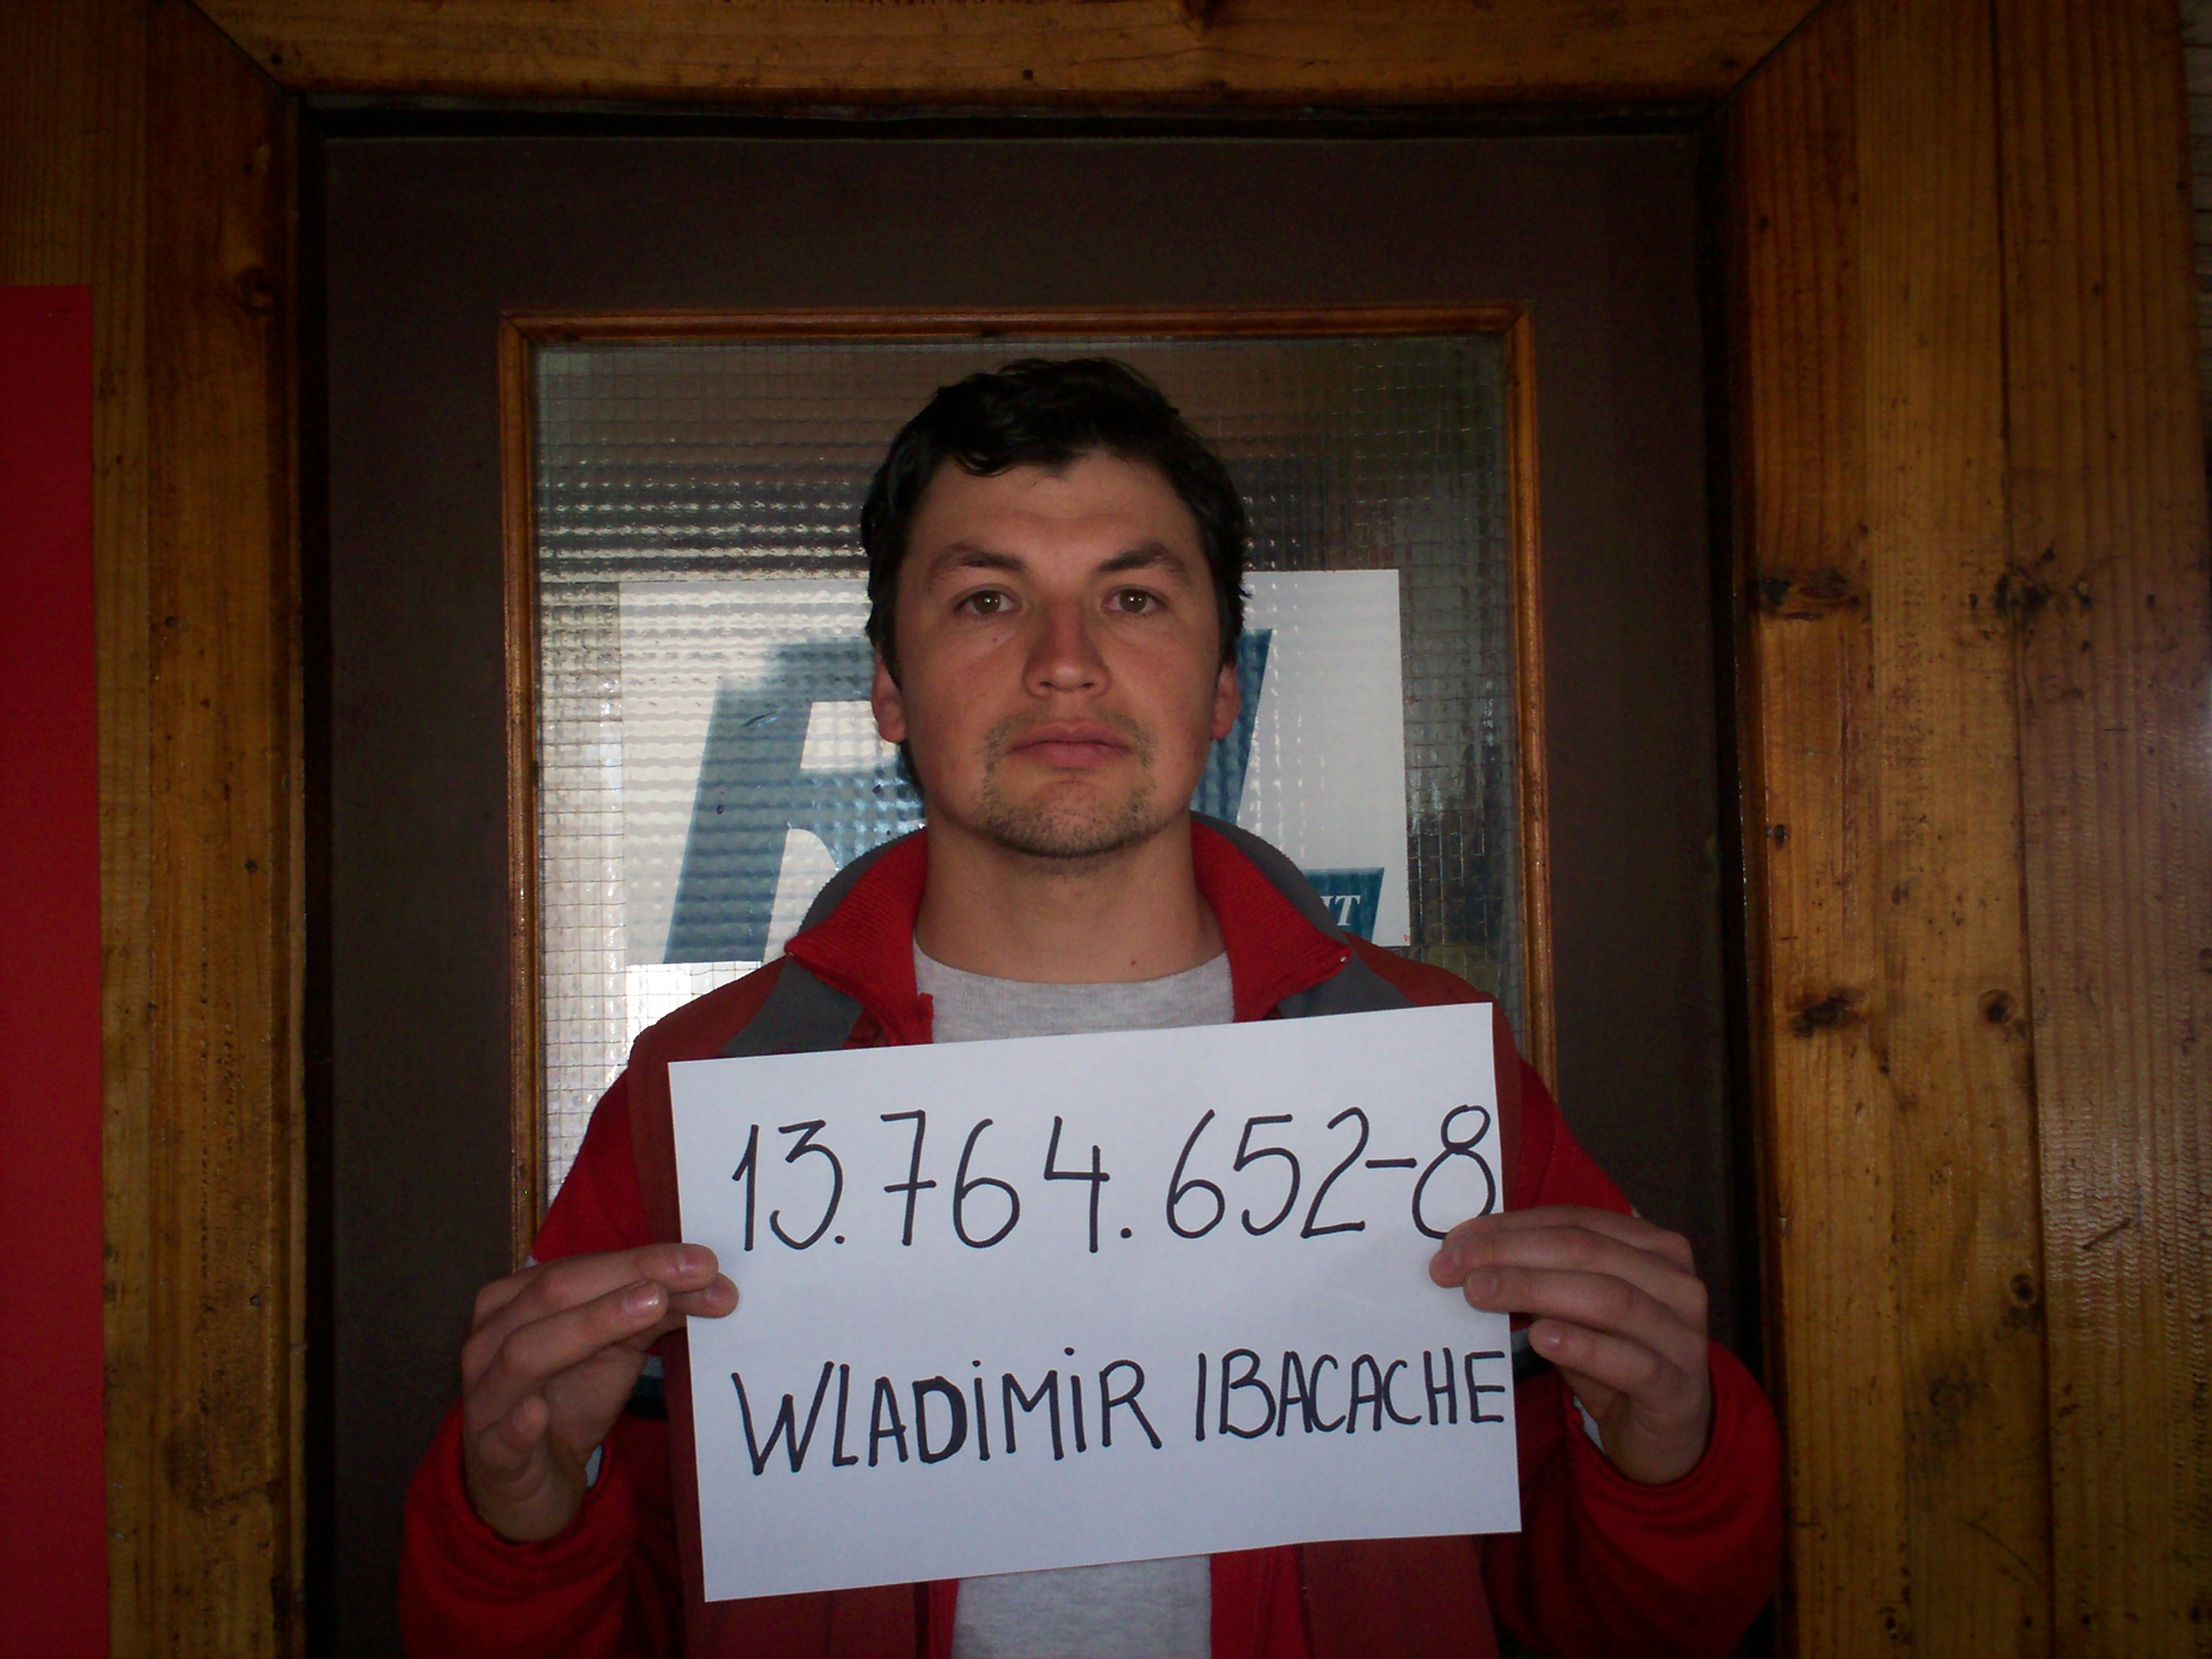 IT
13.764.652-8
WLADiMiR IBACACHE